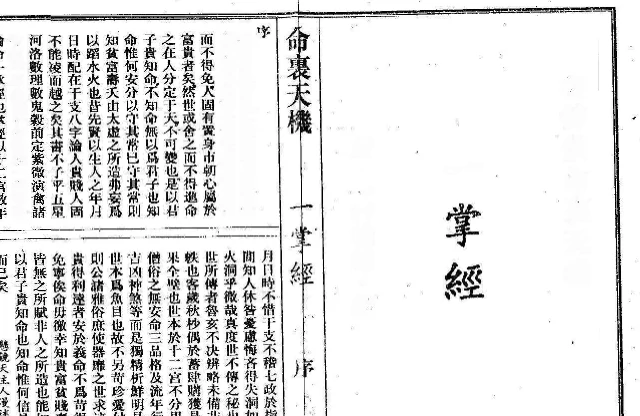 一掌經
命裏天機 一掌經 序
序
而不得免尺固有置身市朝心屬於
富貴者矣然世或舍之而不得逃命
之在人分定于天不可變也是以君
子貴知命不知命無以爲君子也知
命惟何安分以守其常巳守其常則
知貧富壽夭由太虛之所造弗妄爲
以蹈水火也昔先賢以生人之年月
日時配在干支八字論人貴賤人固
不能凌而越之矣其書不了乎五星
河洛數理數鬼穀前定紫微演禽諸
月日時不惜干支不稽七政於指
間知人休咎憂慮悔吝得失洞如
火洞乎微哉真度世不傳之秘
世所傳者魯亥不決辨略未備
軼也客歲秋杪偶於蓄肆購獲
果全璧也世本於十二宮不分
僧俗之無安命三品格及流年
古凶神煞等而是獨精析鮮明
世本爲魚目也故不另苛珍愛
則公諸雅俗庶使器廉之世求
貴得利達者安於義命不爲苛
免寧俟命毋徼幸知貴富貧賤
皆無之所賦非人之所造也能
以君子貴知命也知命惟何信
而已矣